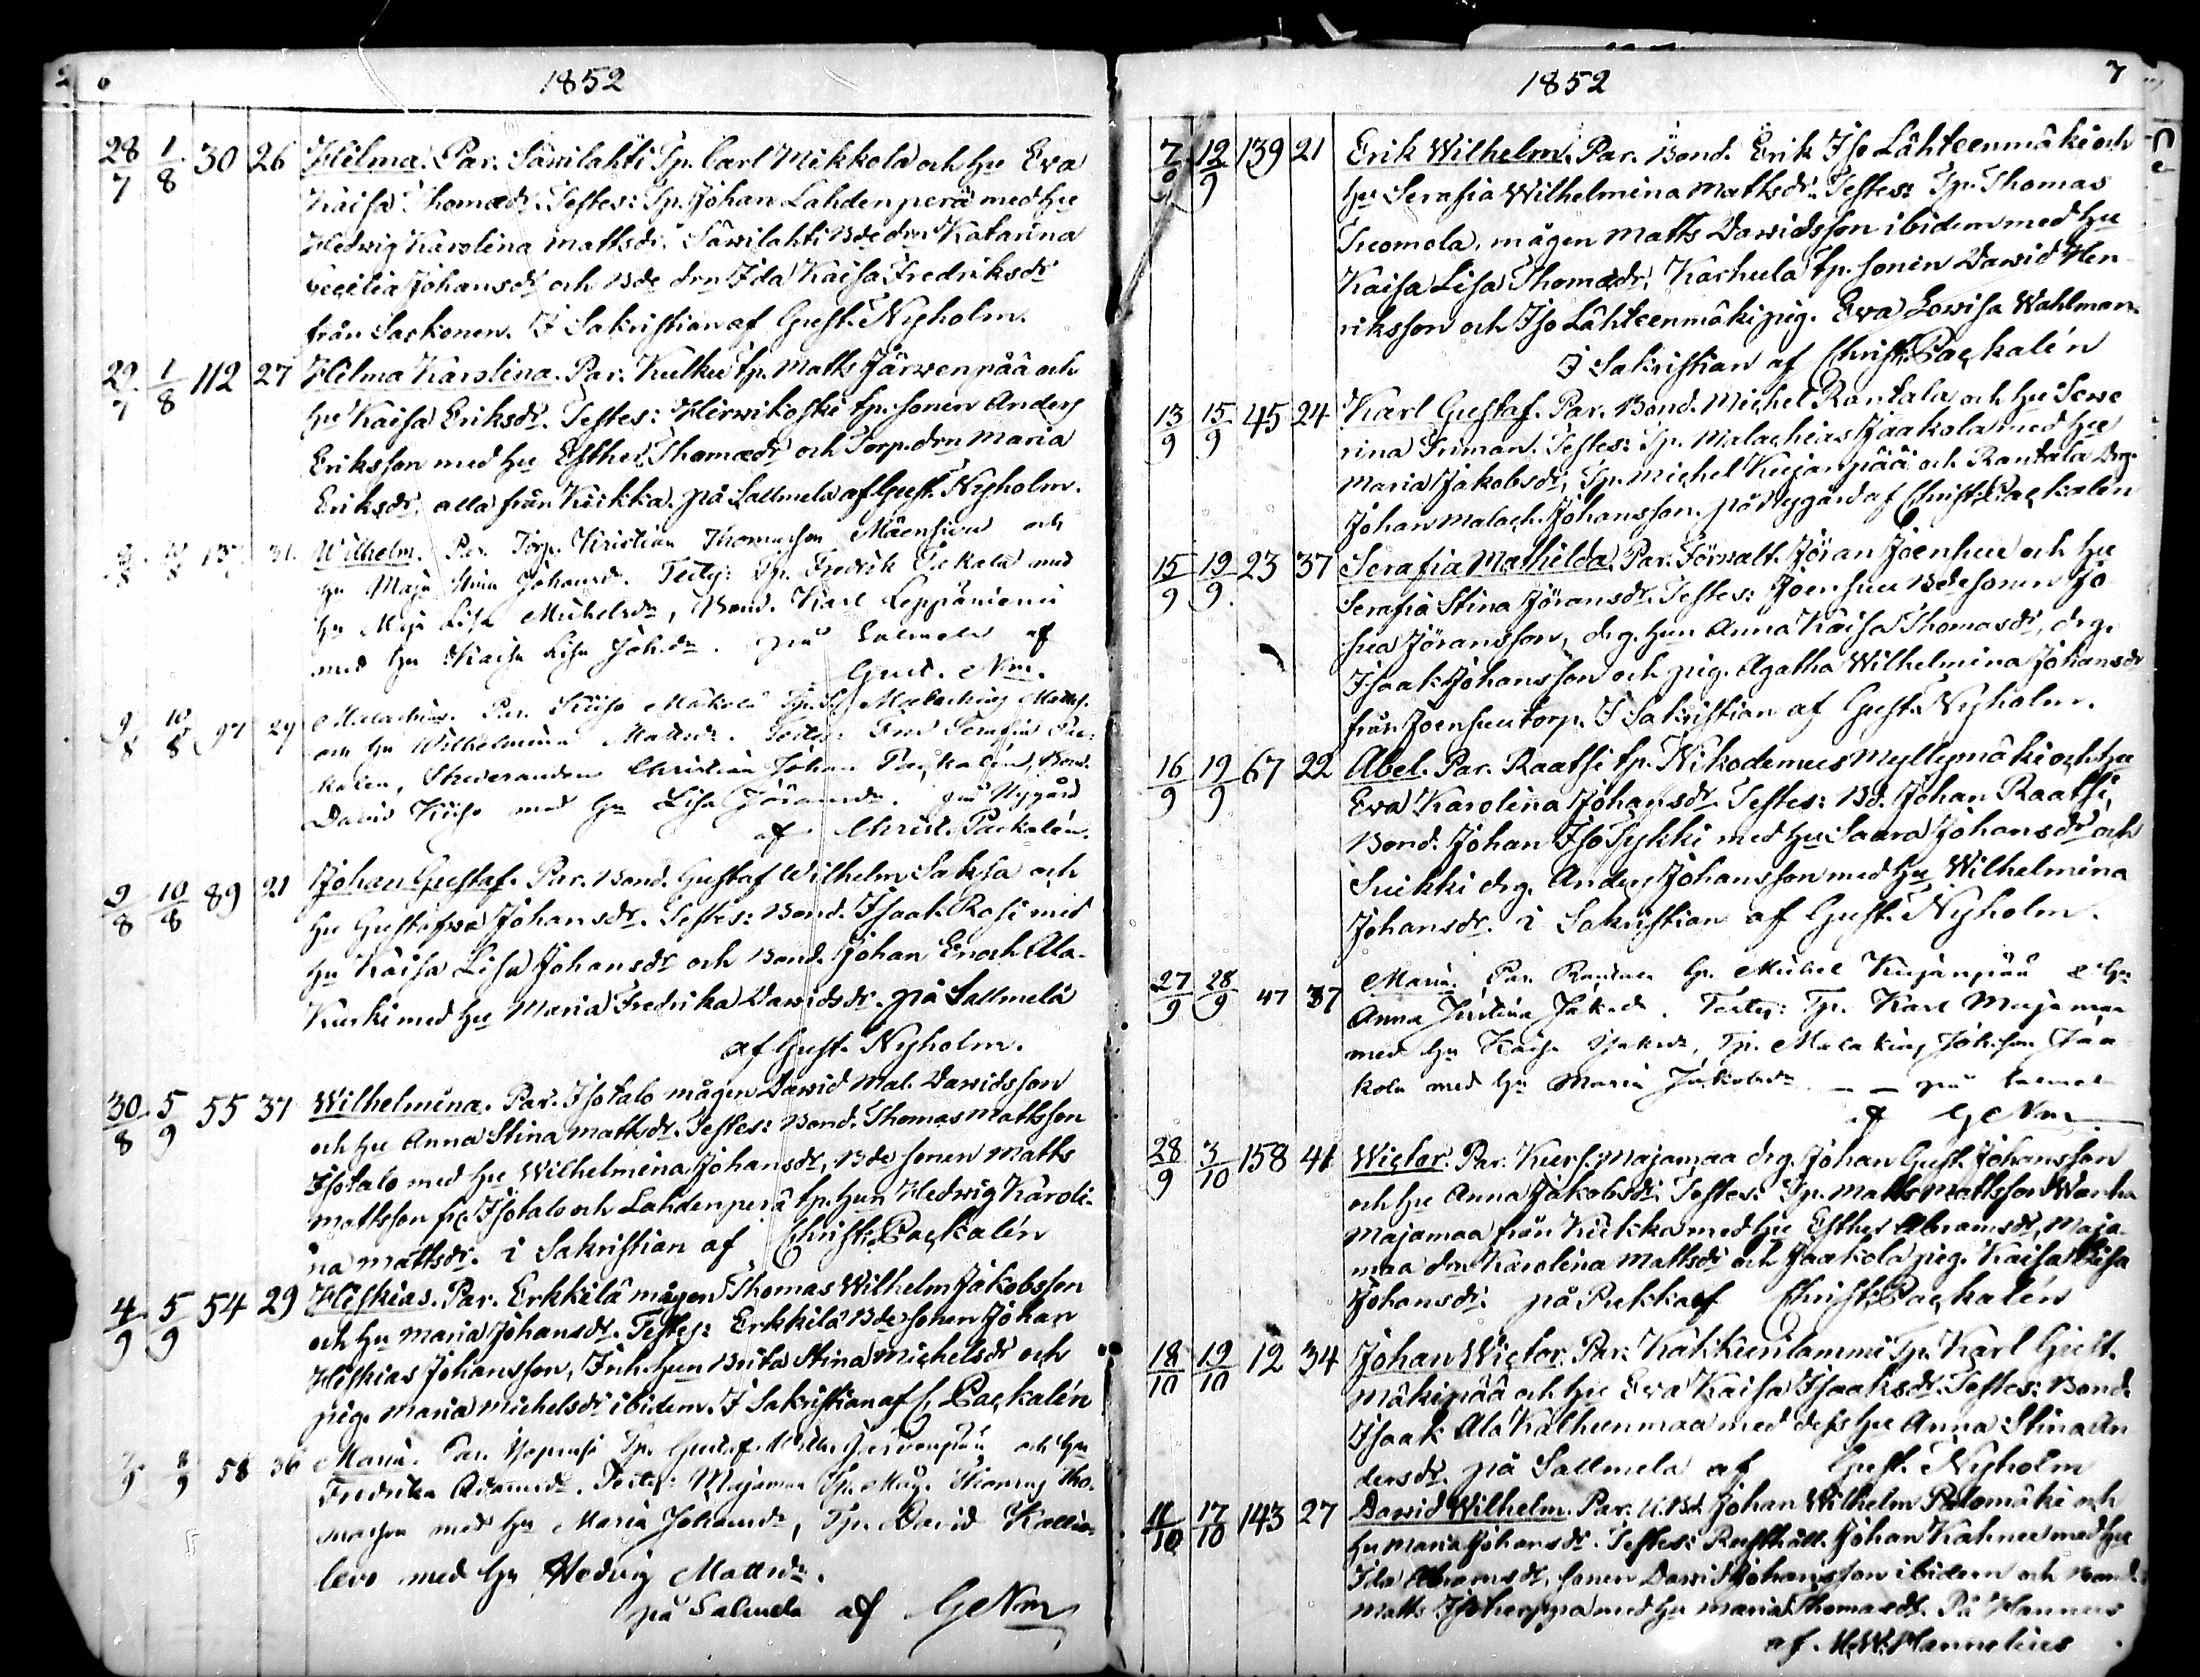 6 1852
28/7 1/8 30 26 Hilma. Par. Säwilahti Tp. Carl Mikkola och Hu Eva
Kaisa Thomædr. Testes: Tp. Johan Lahdenperä med Hu
Hedwig Karolina Mattsdr. Säwilahti Bde drn Katarina
Cecilia Johansdr och Bde drn Ida Kaisa Fredriksdr
från Sarkonen. I Sakristian af Gust. Nyholm.
29/7 1/8 112 27 Hilma Karolina. Par. Kulku tp. Matts Järwenpää och
hu Kaisa Eriksdr. Testes: Hirwikoski tp. sonen Anders
Eriksson med hu Esther Thomædr och Torp. drn Maria
Eriksdr, alla från Kirkka. på Sallmela af Gust. Nyholm.
Wilhelm. Par. Torp. Kristian Thomasson Mäensivu och
hu Maja Stina Johansdr. Testes: Tp. Fredrik med
hu Maja Lisa Michelsdr, Bond. Karl Leppäniemi
med hu Kaisa Lisa Joh.dr. på Salmela af
Gust. Nm.
9/8 10/8 97 29 Malachias. Par. Mäkelä Malachias Matts.
och hu Wilhelmina Mattsdr. Testes: Serafia Pac-
kalen, Studeranden Christian Johan Packalén, Bond.
David med hu Lisa Jöransdr. på Nygård
af Christ. Packalén.
9/8 10/8 89 21 Johan Gustaf. Par. Bond. Gustaf Wilhelm Saksa och
hu Gustafwa Johansdr. Testes: Bond. Isaak Rosi med
hu Kaisa Lisa Johansdr och Bond. Johan Enoch Ala-
Kurki med hu Maria Fredrika Dawidsdr. på Sallmela
af Gust. Nyholm.
30/8 5/9 55 37 Wilhelmina. Par. Isotalo mågen Dawid Mal. Dawidsson
och hu Anna Stina Mattsdr. Testes: Bond. Thomas Mattsson
Isotalo med hu Wilhelmina Johansdr, Bde sonen Matts
Mattsson fr. Isotalo och Lahdenperä tp. hun Hedwig Karoli-
na Mattsdr. i Sakristian af Christ. Packalén
4/9 5/9 54 29 Hiskias. Par. Erkkilä mågen Thomas Wilhelm Jakobsson
och hu Maria Johansdr. Testes: Erkkilä Bde sonen Johan
Hiskias Johansson, Inh. hun Brita Stina Michelsdr och
pig. Maria Michelsdr ibidem. I Sakristian af C. Packalén
58 36 Maria. Par. Tp. Gustaf Järvenpää och hu
Fredrika Adamsdr. Testes: Majamaa Tp. Måg. Thomas Tho-
masson med hu Maria Johansdr, Tp. David Kallio-
levo med hu Hedvig Mattsdr.
på Salmela af GNm
1852 7
7/9 12/9 139 21 Erik Wilhelm. Par. Bond. Erik Iso Lähteenmäki och
hu Serafia Wilhelmina Mattsdr. Testes: Tp. Thomas
Tuomola, mågen Matts Dawidsson ibidem med hu
Kaisa Lisa Thomædr, Karhula tp. sonen Dawid Hen-
riksson och Iso Lähteenmäki pig. Eva Lovisa Wahlman.
I Sakristian af Christ. Packalén
13/9 15/9 45 24 Karl Gustaf. Par. Bond. Michel Rantala och hu Seve-
rina Inman. Testes: Tp. Malachias Jaakola med hu
Maria Jakobsdr, Tp. Michel Kujanpää och Rantala Drg.
Johan Malach. Johansson. på Nygård af Christ. Packalén
15/9 19/9 23 37 Serafia Mathilda. Par. Förvalt. Jöran Joenhuu och hu
Serafia Stina Jöransdr. Testes: Joensuu Bde sonen Jo-
sua Jöransson, drg. hun Anna Kaisa Thomasdr, drg.
Isaak Johansson och pig. Agatha Wilhelmina Johansdr
från Joensuu torp. I Sakristian af Gust. Nyholm.
16/9 19/9 67 22 Abel. Par. Raatsi tp. Nikodemus Myllymäki och hu
Eva Karolina Johansdr. Testes: Bd. Johan Raatsi,
Bond. Johan Iso Tykki med hu Saara Johansdr och
Suikki drg. Anders Johansson med hu Wilhelmina
Johansdr. i Sakristian af Gust. Nyholm.
27/9 28/9 47 37 Maria. Par. Rantala tp. Michel Kujanpää & hu
Anna Justina Jak.dr. Testes: Tp. Karl Majamaa
med hu Kaisa Jakobsdr, Tp. Malakias Johsson Jaa-
kola med hu Maria Jakobsdr — — på Salmela
af GNm
28/9 3/10 158 41 Wictor. Par. Kurs. Majamaa drg. Johan Gust. Johansson
och hu Anna Jakobsdr. Testes: Tp. Matts Mattsson Wanha
Majamaa från Kirkka med hu Esther Abramsdr, Maja-
maa drn Karolina Mattsdr och Jaakola pig. Kaisa Lisa
Johansdr. på Pukka af Christ. Packalén
18/10 19/10 12 34 Johan Wictor. Par. Kätkunlammi Tp. Karl Gust.
Mäkipää och hu Eva Kaisa Isaaksdr. Testes: Bond.
Isaak Ala Kalhunmaa med dess hu Anna Stina An-
dersdr. på Sallmela af Gust. Nyholm
11/10 17/10 143 27 Dawid Wilhelm. Par. U. Bd. Johan Wilhelm Palomäki och
hu Maria Johansdr. Testes: Rusthåll. Johan Kahnu med hu
Ida Abramsdr, sonen Dawid Johansson ibidem och Bond.
Matts med hu Maria Thomædr. På Hannus
af M.W. Hannelius